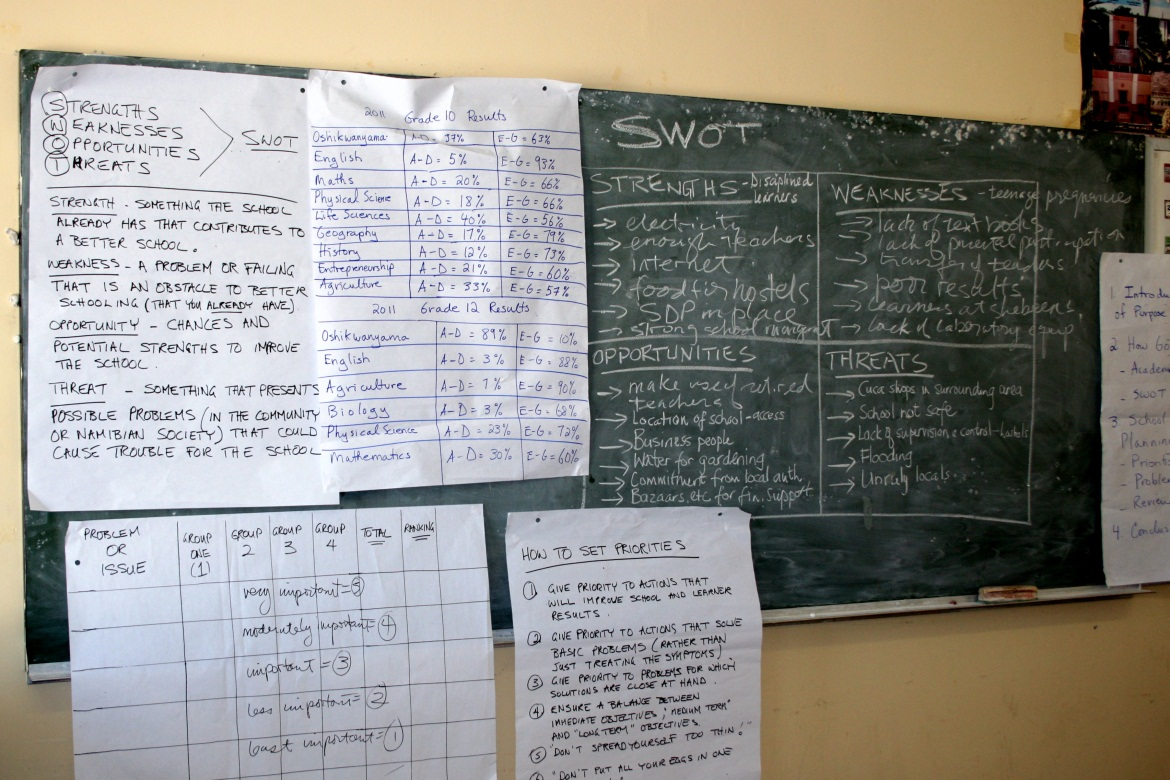 STRENGTHS
WEAKNESSES
OPPORTUNITIES
THREATS
SWOT
STRENGTH - SOMETHING THE SCHOOL
ALREADY HAS THAT CONTRIBUTES TO
A BETTER SCHOOL.
WEAKNESS - A PROBLEM OR FAILING
THAT IS AN OBSTACLE TO BETTER
SCHOOLING (THAT YOU ALREADY HAVE)
OPPORTUNITY - CHANCES AND
POTENTIAL STRENGTHS TO IMPROVE
THE SCHOOL.
THREAT - SOMETHING THAT PRESENTS
POSSIBLE PROBLEMS (IN THE COMMUNITY
OR NAMIBIAN SOCIETY) THAT COULD
CAUSE TROUBLE FOR THE SCHOOL
2011 Grade 10 Results
Oshikwanyama A-D = 37% E-G = 63%
English A-D = 5% E-G = 93%
Maths A-D = 20% E-G = 66%
Physical Science A-D = 18% E-G = 66%
Life Sciences A-D = 40% E-G = 56%
Geography A-D = 17% E-G = 79%
History A-D = 12% E-G = 73%
Entrepreneurship A-D = 21% E-G = 60%
Agriculture A-D = 33% E-G = 57%
2011 Grade 12 Results
Oshikwanyama A-D = 89% E-G = 10%
English A-D = 3% E-G = 88%
Agriculture A-D = 7% E-G = 90%
Biology A-D = 3% E-G = 68%
Physical Science A-D = 23% E-G = 72%
Mathematics A-D = 30% E-G = 60%
SWOT
STRENGTHS - Disciplined
learners
→ electricity
→ enough teachers
→ internet
→ food for hostels
→ SDP in place
→ strong school
WEAKNESSES - teenage pregnancies
→ lack of text books
→ lack of parental
→ transfer of teachers
→ poor results
→ Learners at shebeens
→ Lack of laboratory equip.
OPPORTUNITIES
→ make use of retired
teachers
→ Location of school - access
→ Business people
→ Water for gardening
→ Commitment from local auth.
→ Bazaars, etc for fin. Support
THREATS
→ Cuca shops in surrounding area
→ School not safe
→ Lack of supervision & control - hostels
→ Flooding
→ Unruly locals
1. Introdu
of Purpose
2 How Go
- Academ
- SWOT
3 School
Planning
- Priorit
- Proble
- Review
4. Conclus
PROBLEM
OR
ISSUE
GROUP
ONE
(1)
GROUP
2
GROUP
3
GROUP
4
TOTAL
RANKING
very important = 5
moderately important = 4
important = 3
less important = 2
least important = 1
HOW TO SET PRIORITIES
1 GIVE PRIORITY TO ACTIONS THAT
WILL IMPROVE SCHOOL AND LEARNER
RESULTS.
2 GIVE PRIORITY TO ACTIONS THAT SOLVE
BASIC PROBLEMS (RATHER THAN
JUST TREATING THE SYMPTOMS)
3 GIVE PRIORITY TO PROBLEMS FOR WHICH
SOLUTIONS ARE CLOSE AT HAND.
4 ENSURE A BALANCE BETWEEN
IMMEDIATE OBJECTIVES, "MEDIUM TERM"
AND "LONG TERM" OBJECTIVES
5 "DON'T SPREAD YOURSELF TOO THIN!"
6 "DON'T PUT ALL YOUR EGGS IN ONE